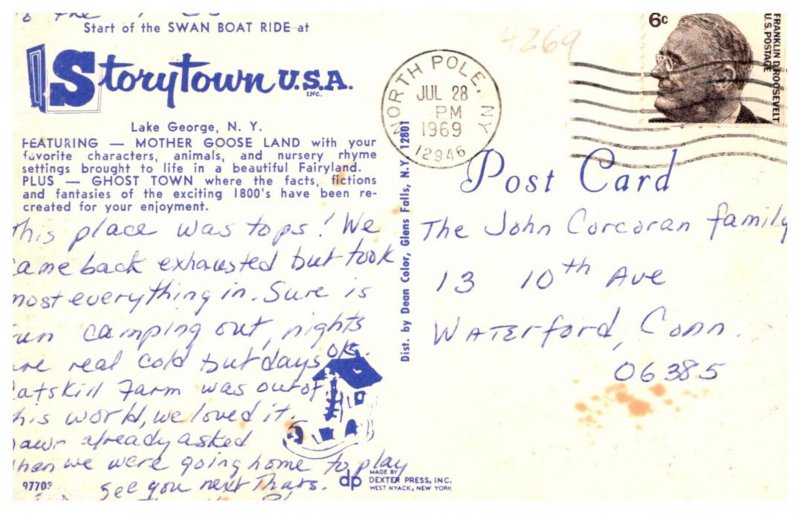 Start of the SWAN BOAT RIDE at
Storytown U.S.A.
INC.
Lake George, N. Y.
FEATURING — MOTHER GOOSE LAND with your
favorite characters, animals, and nursery rhyme
settings brought to life in a beautiful Fairyland.
PLUS — GHOST TOWN where the facts, fictions
and fantasies of the exciting 1800's have been re-
created for your enjoyment.
This place was tops! We
came back exhausted but took
most everything in. Sure is
fun camping out, nights
are real cold but days O.K.
Catskill Farm was out of
this world, we loved it.
already asked
when we were going home to play
see you next Thurs.
97702
dp
MADE BY
DEXTER PRESS, INC.
WEST NYACK, NEW YORK
Dist. by Dean Color, Glens Falls, N.Y. 12801
4269
NORTH POLE, NY
JUL 28
PM
1969
12946
6c
FRANKLIN D. ROOSEVELT
U.S. POSTAGE
Post Card
The John Corcoran family
13 10th Ave
Waterford, Conn.
06385